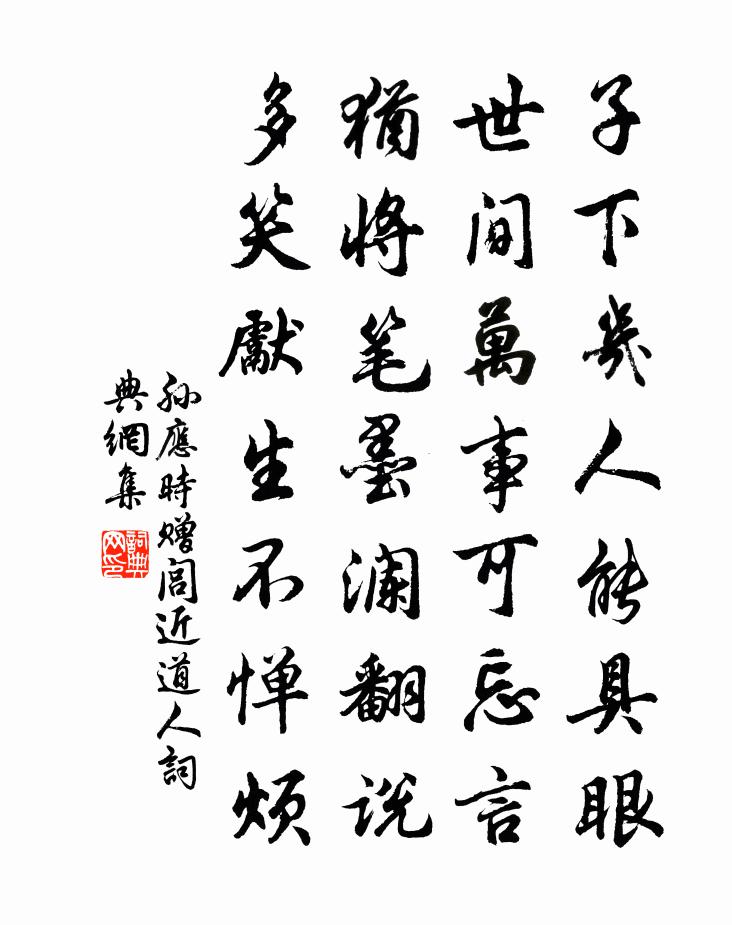 子下幾人能具眼
世间萬事可忘言
猶將笔墨澜翻说
多笑獻生不惮烦
孙應時赠闾近道人詞
典網集
詞典
网印